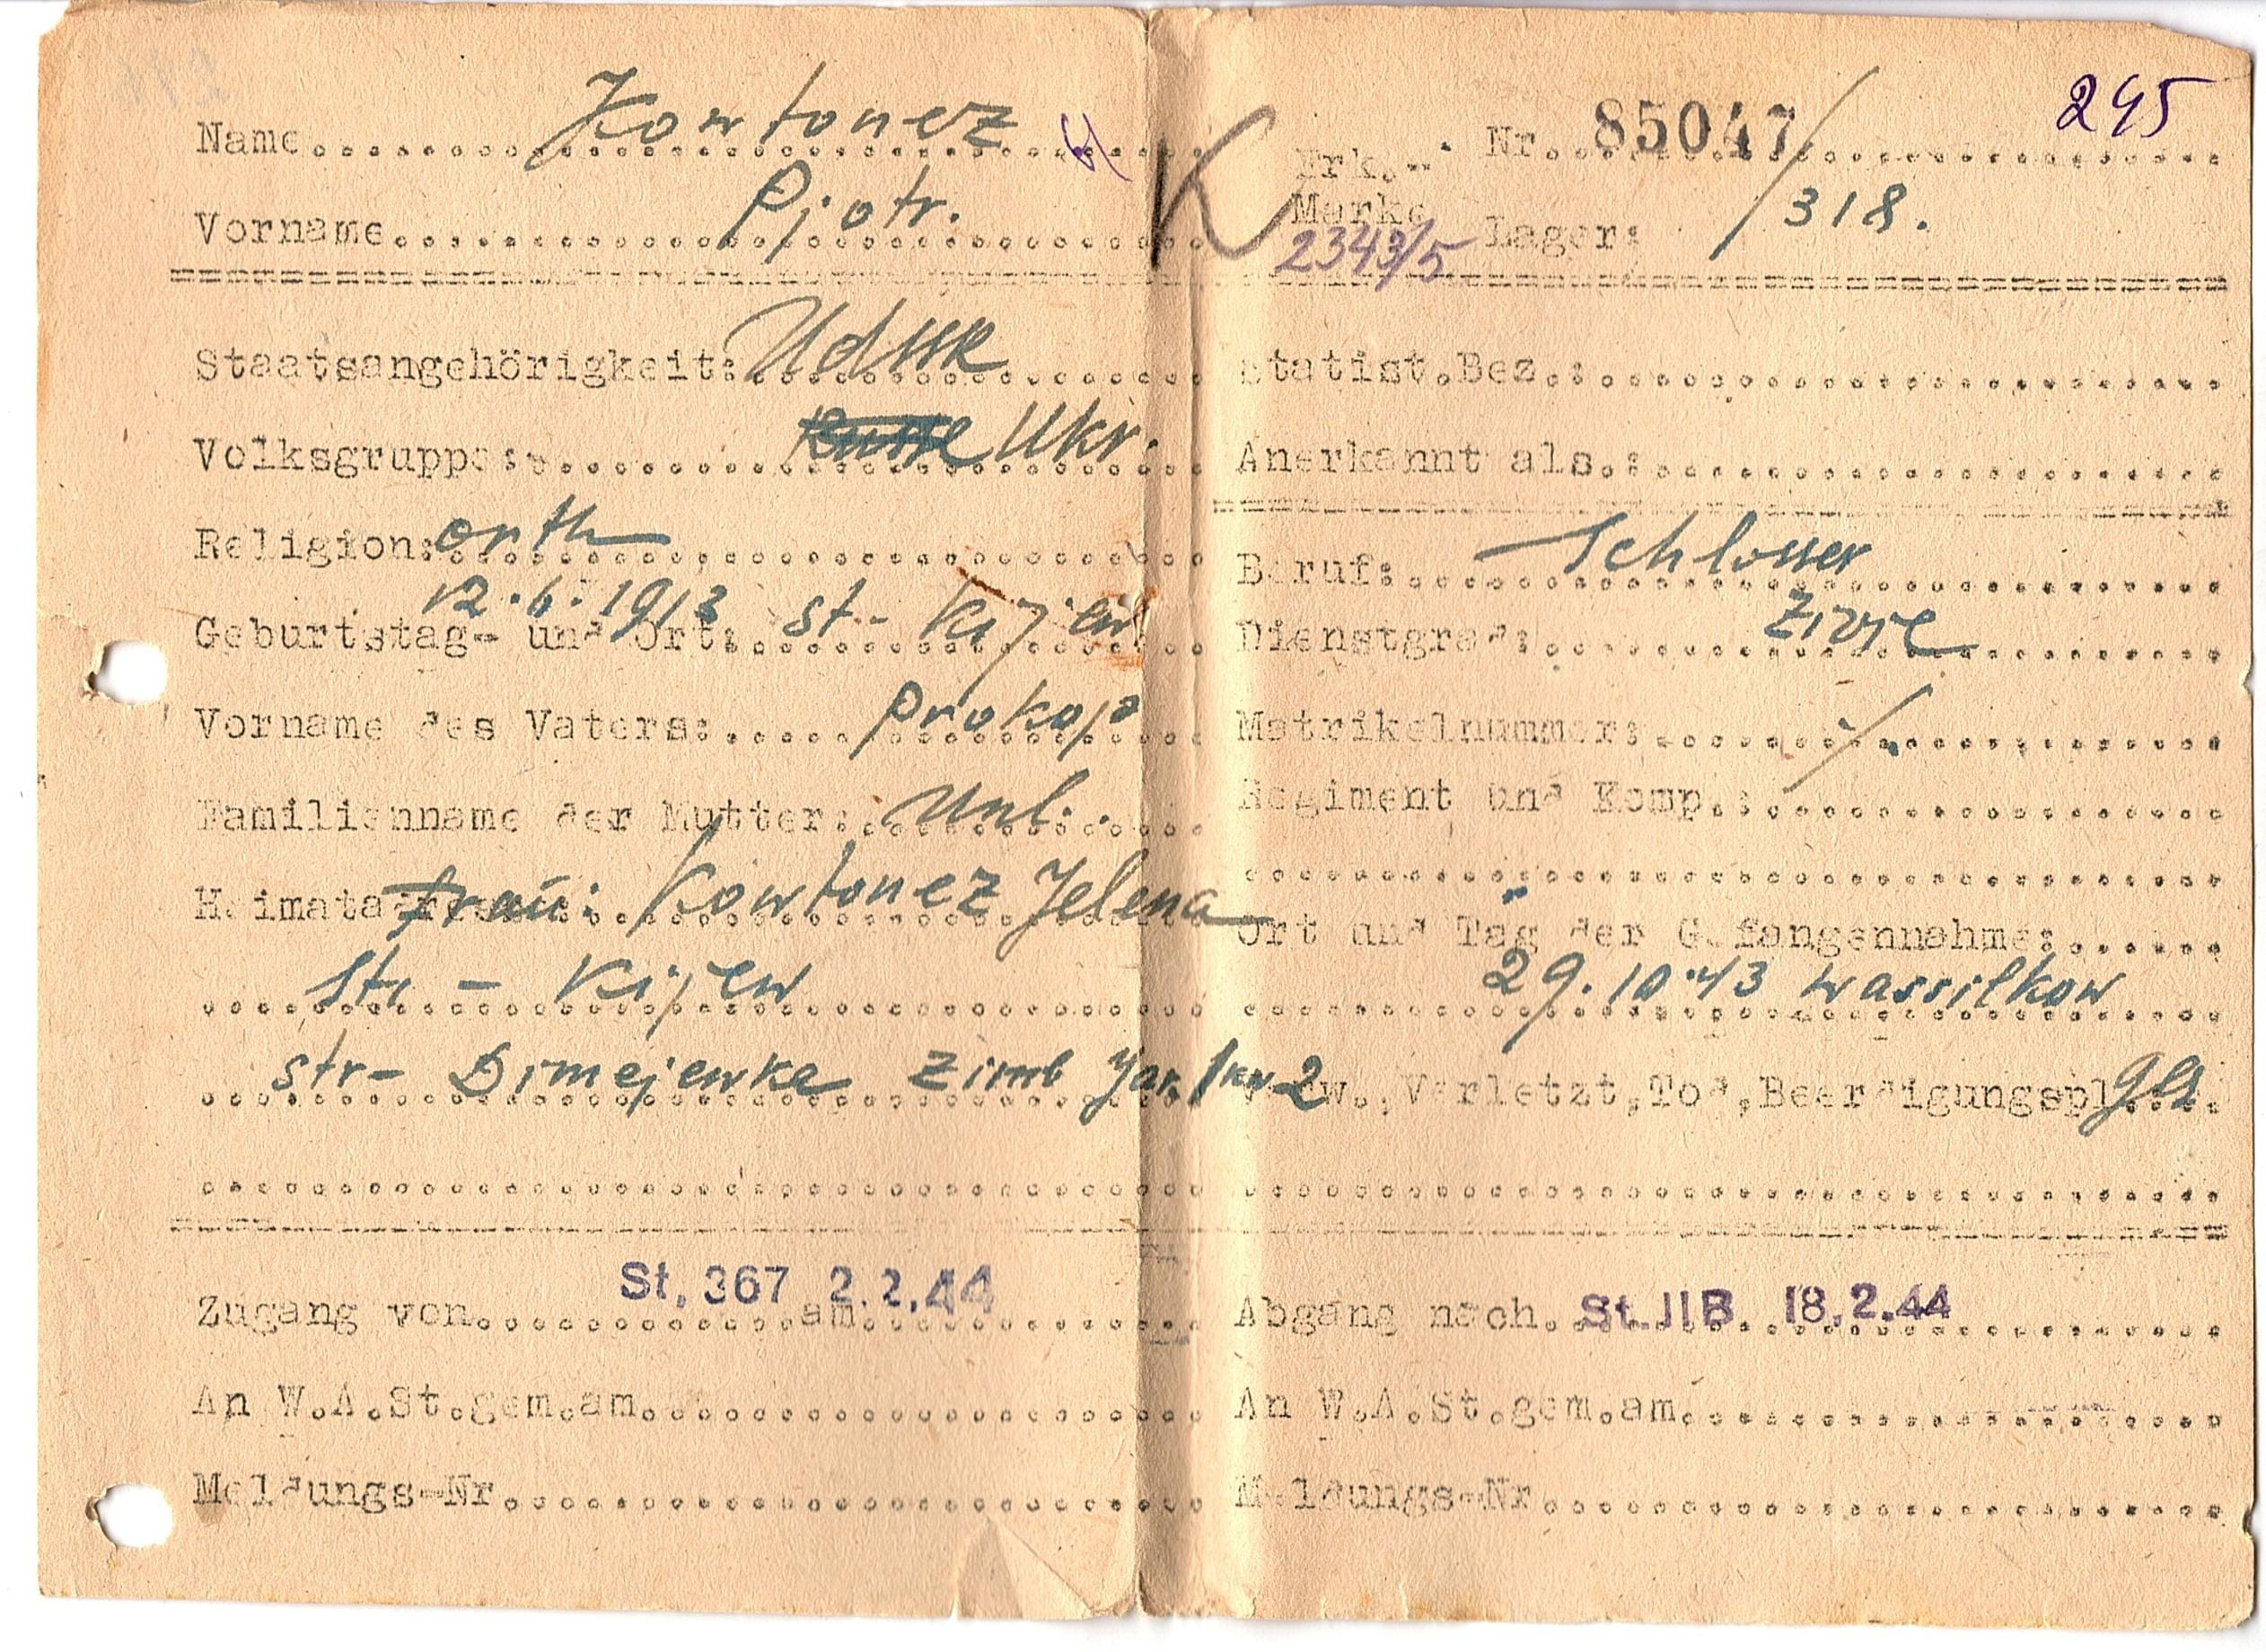 Name.......... Kowtonez
Vorname.......... Pjotr.
Staatsangehörigkeit: UdSSR
Volksgruppe: Russe Ukr.
Religion: orth
Geburtstag- und Ort: 12.6.1913 st- Kijew
Vorname des Vaters: Prokop
Familienname der Mutter: Unl.
Heimatadresse: Frau: Kowtonez Jelena
St. - Kijew
str- Dimejewka Zimb Jar. 1 kw 2
Zugang von St. 367 am 2.2.44
An W.A.St.gem.am.
Meldungs-Nr.
K
295
Erk.-Marke Nr. 85047/
2343/5 Lager: 318.
Statist.Bez.:
Anerkannt als.:
Beruf: Schlosser
Dienstgrad: Zivil
Matrikelnummer: ./.
Regiment und Komp.:
Ort und Tag der Gefangennahme:
29.10.43 Wassilkow
Verw., Verletzt, Tod, Beerdigungspl.
Abgang nach St. IIB 18.2.44
An W.A.St.gem.am.
Meldungs-Nr.